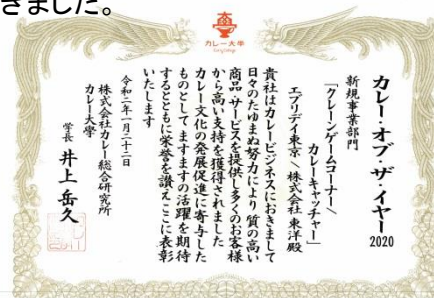 きました。
カレー大學
カレー・オブ・ザ・イヤー2020
新規事業部門
「クレーンゲームコーナー＼
カレーキャッチャー」
エブリデイ東京＼株式会社東洋殿
貴社はカレービジネスにおきまして
日々のたゆまぬ努力により質の高い
商品・サービスを提供し多くのお客様
から高い支持を獲得されました
カレー文化の発展促進に寄与した
ものとしてますますの活躍を期待
するとともに栄誉を讃えここに表彰
いたします
令和二年一月二十二日
株式会社カレー総合研究所
カレー大學
学長 井上岳久